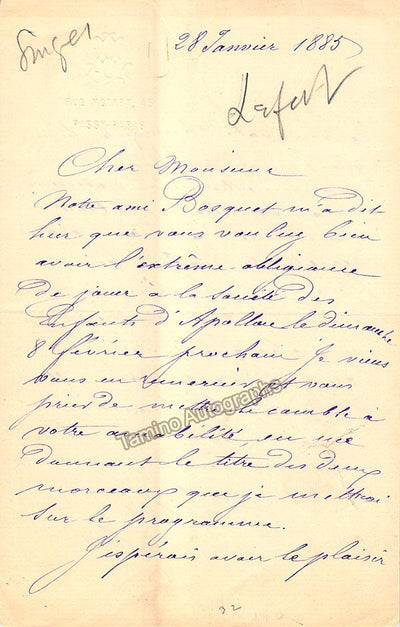 Singer
28 Janvier 1885
Lefort
RUE MOZART, 45
PASSY-PARIS
Cher Monsieur
Notre ami Bosquet m'a dit
hier que vous vouliez bien
avoir l'extrême obligeance
de jouer à la société des
Enfants d'Apollon le dimanche
8 février prochain Je viens
vous en remercier et vous
prier de mettre le comble à
votre amabilité en me
donnant le titre des deux
morceaux que je mettrai
sur le programme.
J'espérais avoir le plaisir
32
Tamino Autographs